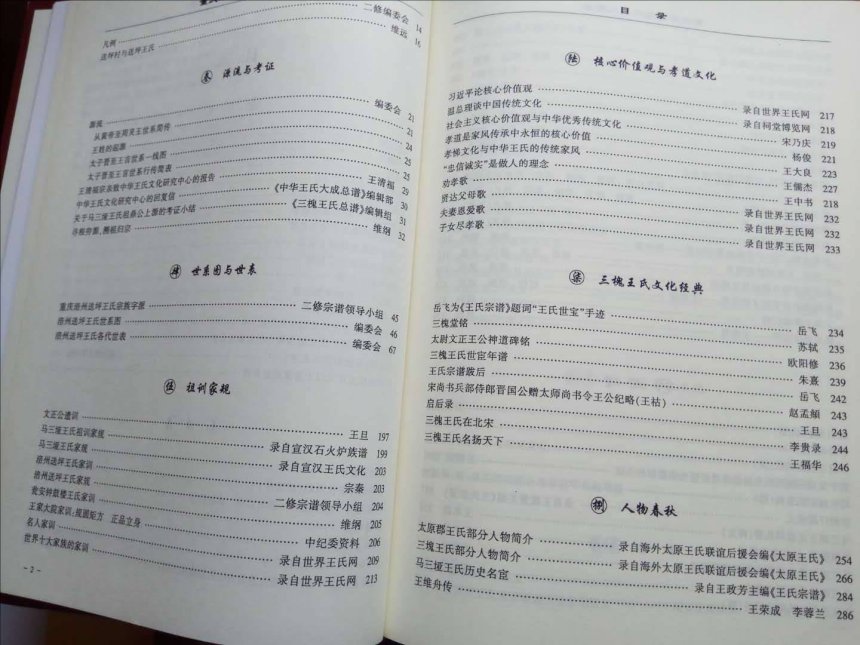 二修编委会 14
凡例
维远 16
送坪村与送坪王氏
叁 源流与考证
编委会 21
源流 21
从黄帝至周灵王世系简传 24
王姓的起源 25
太子晋至王言世系一线图 25
太子晋至王言世系行传简表 25
王清福 29
王清福宗亲致中华王氏文化研究中心的报告
中华王氏文化研究中心的回复信 《中华王氏大成总谱》编辑部 30
关于马三堰王氏祖鼎公上源的考证小结 《三槐王氏总谱》编辑组 31
寻根穷源,圈祖归宗 维纲 32
肆 世系图与世表
重庆涪州送坪王氏宗族字派 二修宗谱领导小组 45
涪州送坪王氏世系图 编委会 46
涪州送坪王氏各代世表 编委会 67
伍 祖训家规
文正公遗训 王旦 197
马三堰王氏祖训家规 录自宣汉石火炉族谱 199
马三堰王氏家规 录自宣汉王氏文化 203
涪州送坪王氏家训 宗秦 203
涪州送坪王氏家规 二修宗谱领导小组 204
瓮安钟鼓楼王氏家训 维纲 205
王家大院家训:规圆矩方 正品立身 中纪委资料 206
名人家训 录自世界王氏网 209
世界十大家族的家训 录自世界王氏网 213
- 2 -
目 录
陆 核心价值观与孝道文化
习近平论核心价值观 录自世界王氏网 217
温总理谈中国传统文化 录自祠堂博览网 218
社会主义核心价值观与中华优秀传统文化 宋乃庆 219
孝道是家风传承中永恒的核心价值 杨俊 221
孝悌文化与中华王氏的传统家风 王大良 223
“忠信诚实”是做人的理念 王儒杰 227
劝孝歌 王中书 218
贤达父母歌 录自世界王氏网 232
夫妻恩爱歌 录自世界王氏网 232
子女尽孝歌 录自世界王氏网 233
柒 三槐王氏文化经典
岳飞为《王氏宗谱》题词“王氏世宝”手迹 岳飞 234
三槐堂铭 苏轼 235
太尉文正王公神道碑铭 欧阳修 236
三槐王氏世宦年谱 朱熹 239
王氏宗谱跋后 岳飞 242
宋尚书兵部侍郎晋国公赠太师尚书令王公纪略(王祜) 赵孟頫 243
启后录 王旦 243
三槐王氏在北宋 李贵录 244
三槐王氏名扬天下 王福华 246
捌 人物春秋
太原郡王氏部分人物简介 录自海外太原王氏联谊后援会编《太原王氏》 254
三槐王氏部分人物简介 录自海外太原王氏联谊后援会编《太原王氏》 266
马三堰王氏历史名宦 录自王政芳主编《王氏宗谱》 284
王维舟传 王荣成 李蓉兰 286